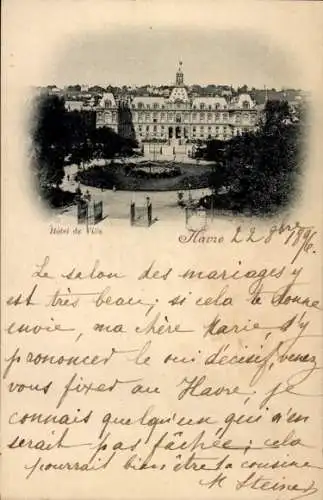 Hôtel de Ville
Havre 22 8bre 1896
Le salon des mariages y
est très beau; si cela te donne
envie, ma chère Marie, d'y
prononcer le oui décisif, venez
vous fixer au Havre, je
connais quelqu'un qui n'en
serait pas fâchée; cela
pourrait bien être ta cousine
M Steiner